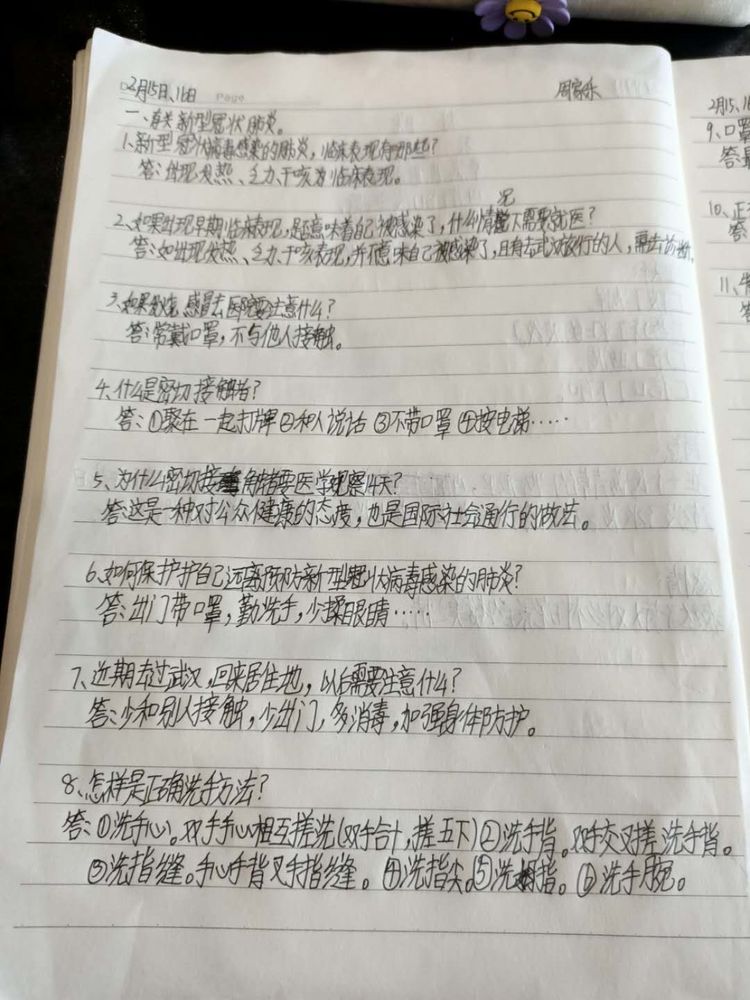 2月15日、16日 Page 周家乐
一、有关新型冠状肺炎。
1、新型冠状病毒感染的肺炎，临床表现有哪些？
答：出现发热、乏力、干咳为临床表现。
2、如果出现早期临床表现，是否意味着自己被感染了，什么情况下需要就医？
答：如出现发热、乏力、干咳表现，并不意味自己被感染了，且有去武汉旅行的人，需去诊断。
3、如果发烧、感冒去医院要注意什么？
答：常戴口罩，不与他人接触。
4、什么是密切接触者？
答：①聚在一起打牌②和人说话③不带口罩④按电梯……
5、为什么密切接触者要医学观察14天？
答：这是一种对公众健康的态度，也是国际社会通行的做法。
6、如何保护护自己远离预防新型冠状病毒感染的肺炎？
答：出门带口罩，勤洗手，少揉眼睛……
7、近期去过武汉，回来居住地，以后需要注意什么？
答：少和别人接触，少出门，多消毒，加强身体防护。
8、怎样是正确洗手方法？
答：①洗手心。双手手心相互搓洗(双手合十，搓五下)②洗手背。双手交叉搓洗手背。
③洗指缝。手心手背叉手指缝。④洗指尖。⑤洗拇指。⑥洗手腕。
2月15、16
9、口罩
答：
10、正
答
11、
答